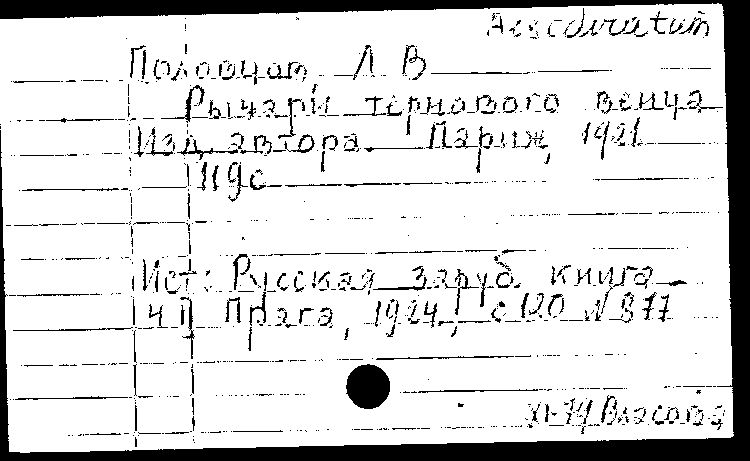 Desideratum
Половцов, Л В
Рыцари тернового венца
Изд. автора. Париж, 1921
119с
Ист: Русская заруб книга.
ч П Прага, 1924, с 120 N 877
XI-74